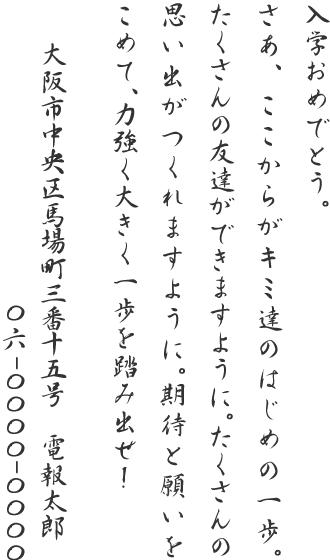 入学おめでとう。
さあ、ここからがキミ達のはじめの一歩。
たくさんの友達ができますように。たくさんの
思い出がつくれますように。期待と願いを
こめて、力強く大きく一歩を踏み出せ！
大阪市中央区馬場町三番十五号　電報太郎
〇六－〇〇〇〇－〇〇〇〇